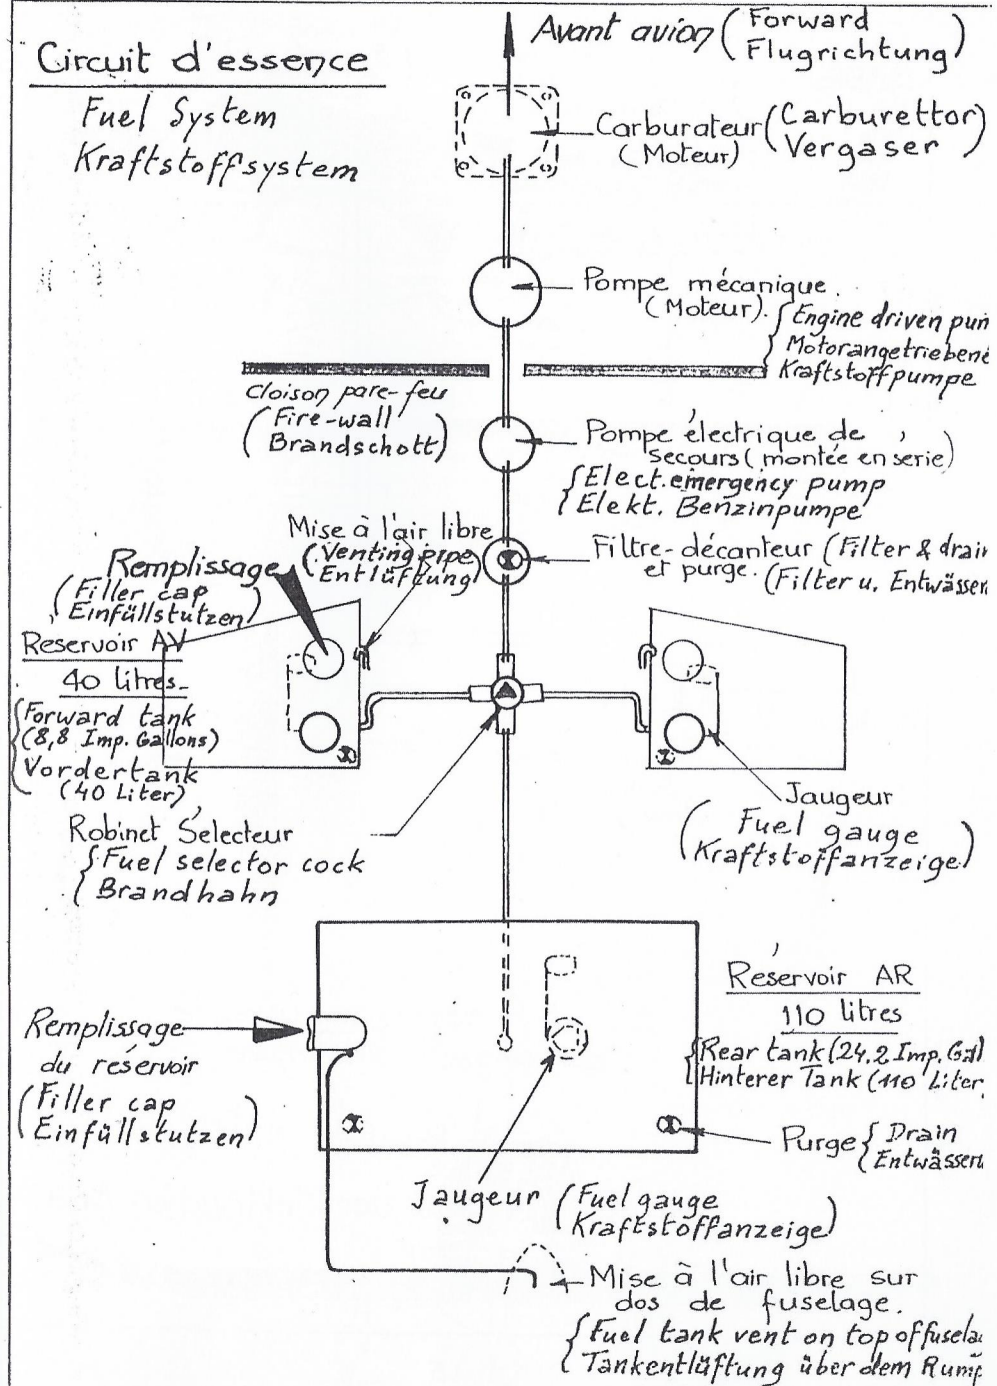 Circuit d'essence
Fuel System
Kraftstoffsystem
Avant avion (Forward
Flugrichtung)
Carburateur (Carburettor)
(Moteur) Vergaser
Pompe mécanique.
(Moteur).
Engine driven pum
Motorangetriebene
Kraftstoffpumpe
Cloison pare-feu
(Fire-wall
Brandschott)
Pompe électrique de
secours (montée en série)
Elect. emergency pump
Elekt. Benzinpumpe
Mise à l'air libre
(Venting pipe
Entlüftung)
Filtre-décanteur (Filter & drain
et purge. (Filter u. Entwässer
Remplissage
(Filler cap
Einfüllstutzen)
Reservoir AV
40 litres-
Forward tank
(8,8 Imp. Gallons)
Vordertank
(40 Liter)
Robinet Sélecteur
Fuel selector cock
Brandhahn
Jaugeur
(Fuel gauge
Kraftstoffanzeige)
Réservoir AR
110 litres
Rear tank (24.2 Imp. Gal)
Hinterer Tank (110 Liter
Remplissage
du réservoir
(Filler cap
Einfüllstutzen)
Purge { Drain
Entwässeru
Jaugeur (Fuel gauge
Kraftstoffanzeige)
Mise à l'air libre sur
dos de fuselage.
Fuel tank vent on top of fusela
Tankentlüftung über dem Rump